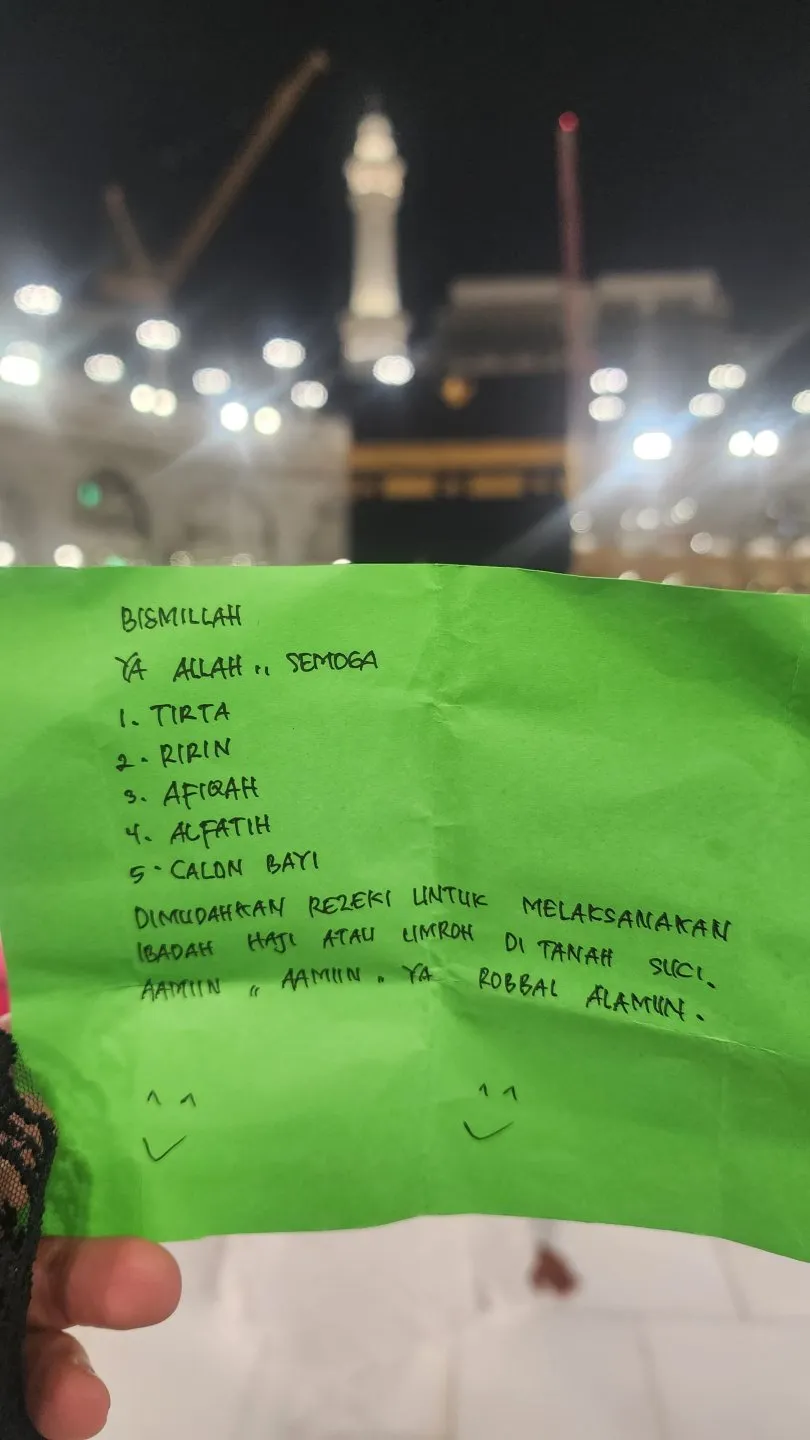 BISMILLAH
YA ALLAH ,, SEMOGA
1. TIRTA
2. RIRIN
3. AFIQAH
4. ALFATIH
5. CALON BAYI
DIMUDAHKAN REZEKI UNTUK MELAKSANAKAN
IBADAH HAJI ATAU UMROH DI TANAH SUCI.
AAMIIN ,, AAMIIN . YA ROBBAL ALAMIIN.